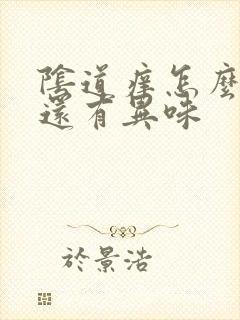 陰道癢怎麼
還有異味
於景浩